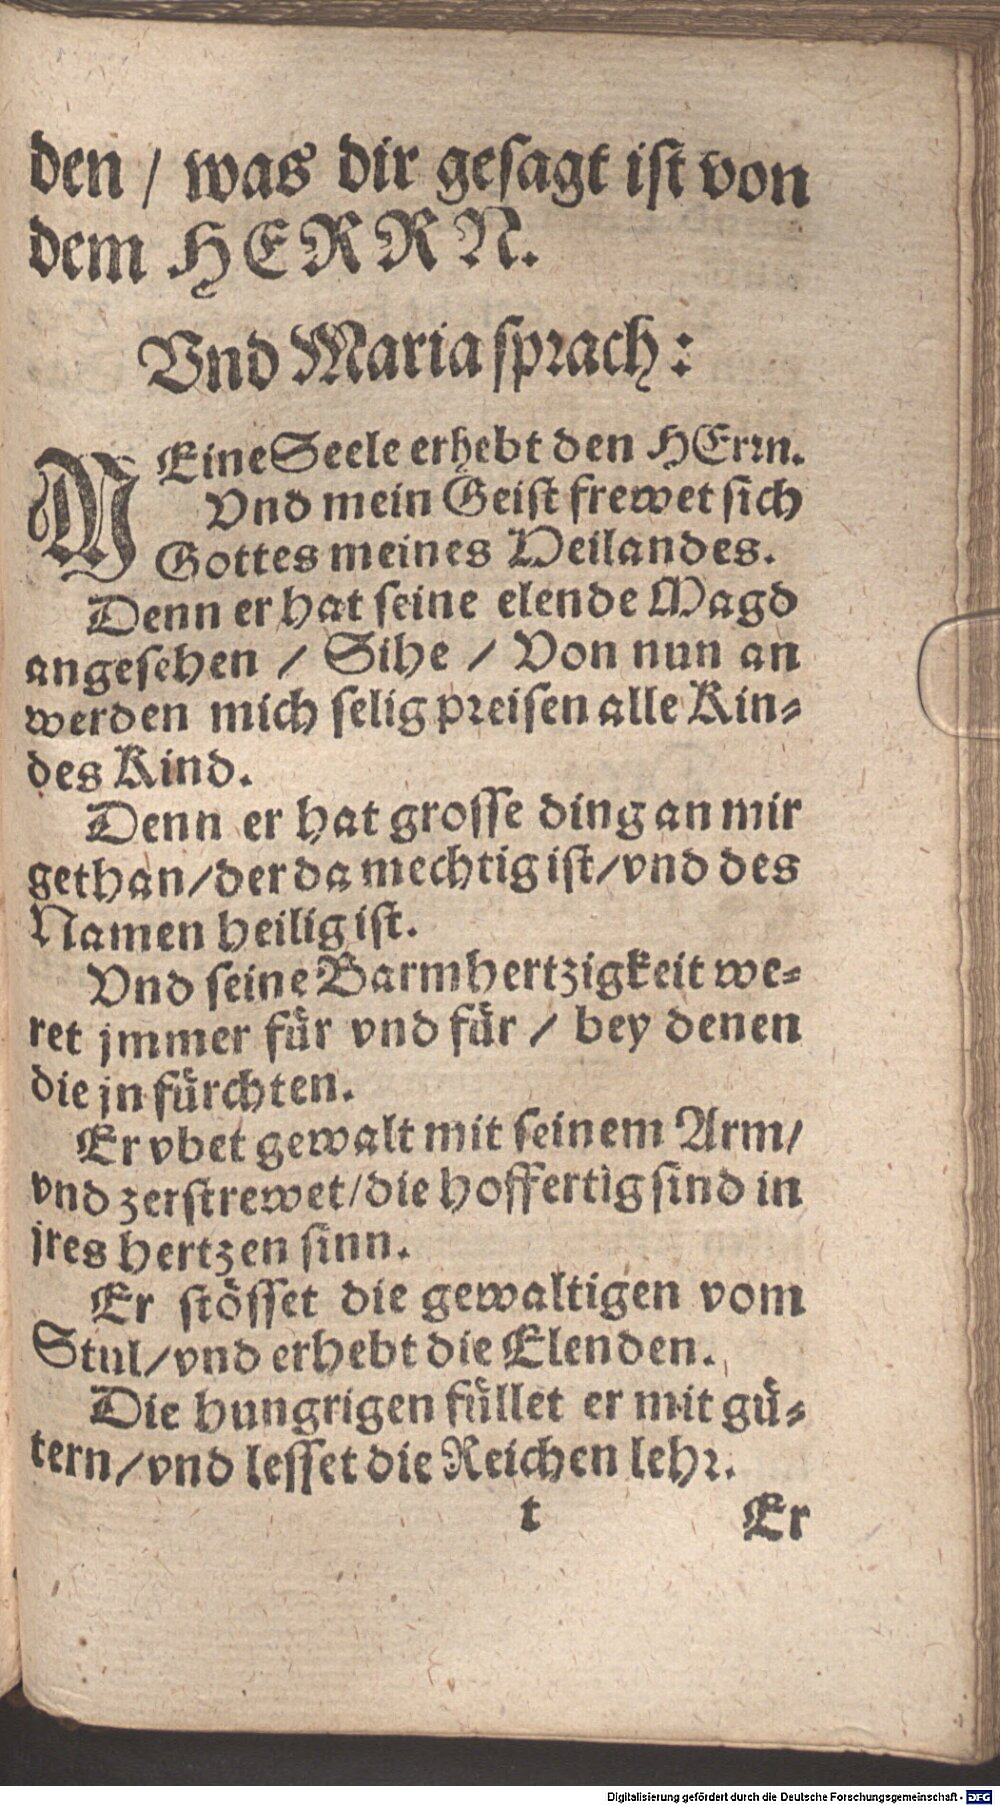 den / was dir gesagt ist von
dem HERRN.
Vnd Maria sprach:
MEine Seele erhebt den HErrn.
Vnd mein Geist frewet sich
Gottes meines Heilandes.
Denn er hat seine elende Magd
angesehen / Sihe / Von nun an
werden mich selig preisen alle Kin-
des Kind.
Denn er hat grosse ding an mir
gethan/der da mechtig ist/vnd des
Namen heilig ist.
Vnd seine Barmhertzigkeit we-
ret jmmer für vnd für / bey denen
die jn fürchten.
Er vbet gewalt mit seinem Arm/
vnd zerstrewet/die hoffertig sind in
jres hertzen sinn.
Er stösset die gewaltigen vom
Stul/vnd erhebt die Elenden.
Die hungrigen füllet er mit gü-
tern/vnd lesset die Reichen lehr.
t Er
Digitalisierung gefördert durch die Deutsche Forschungsgemeinschaft - DFG